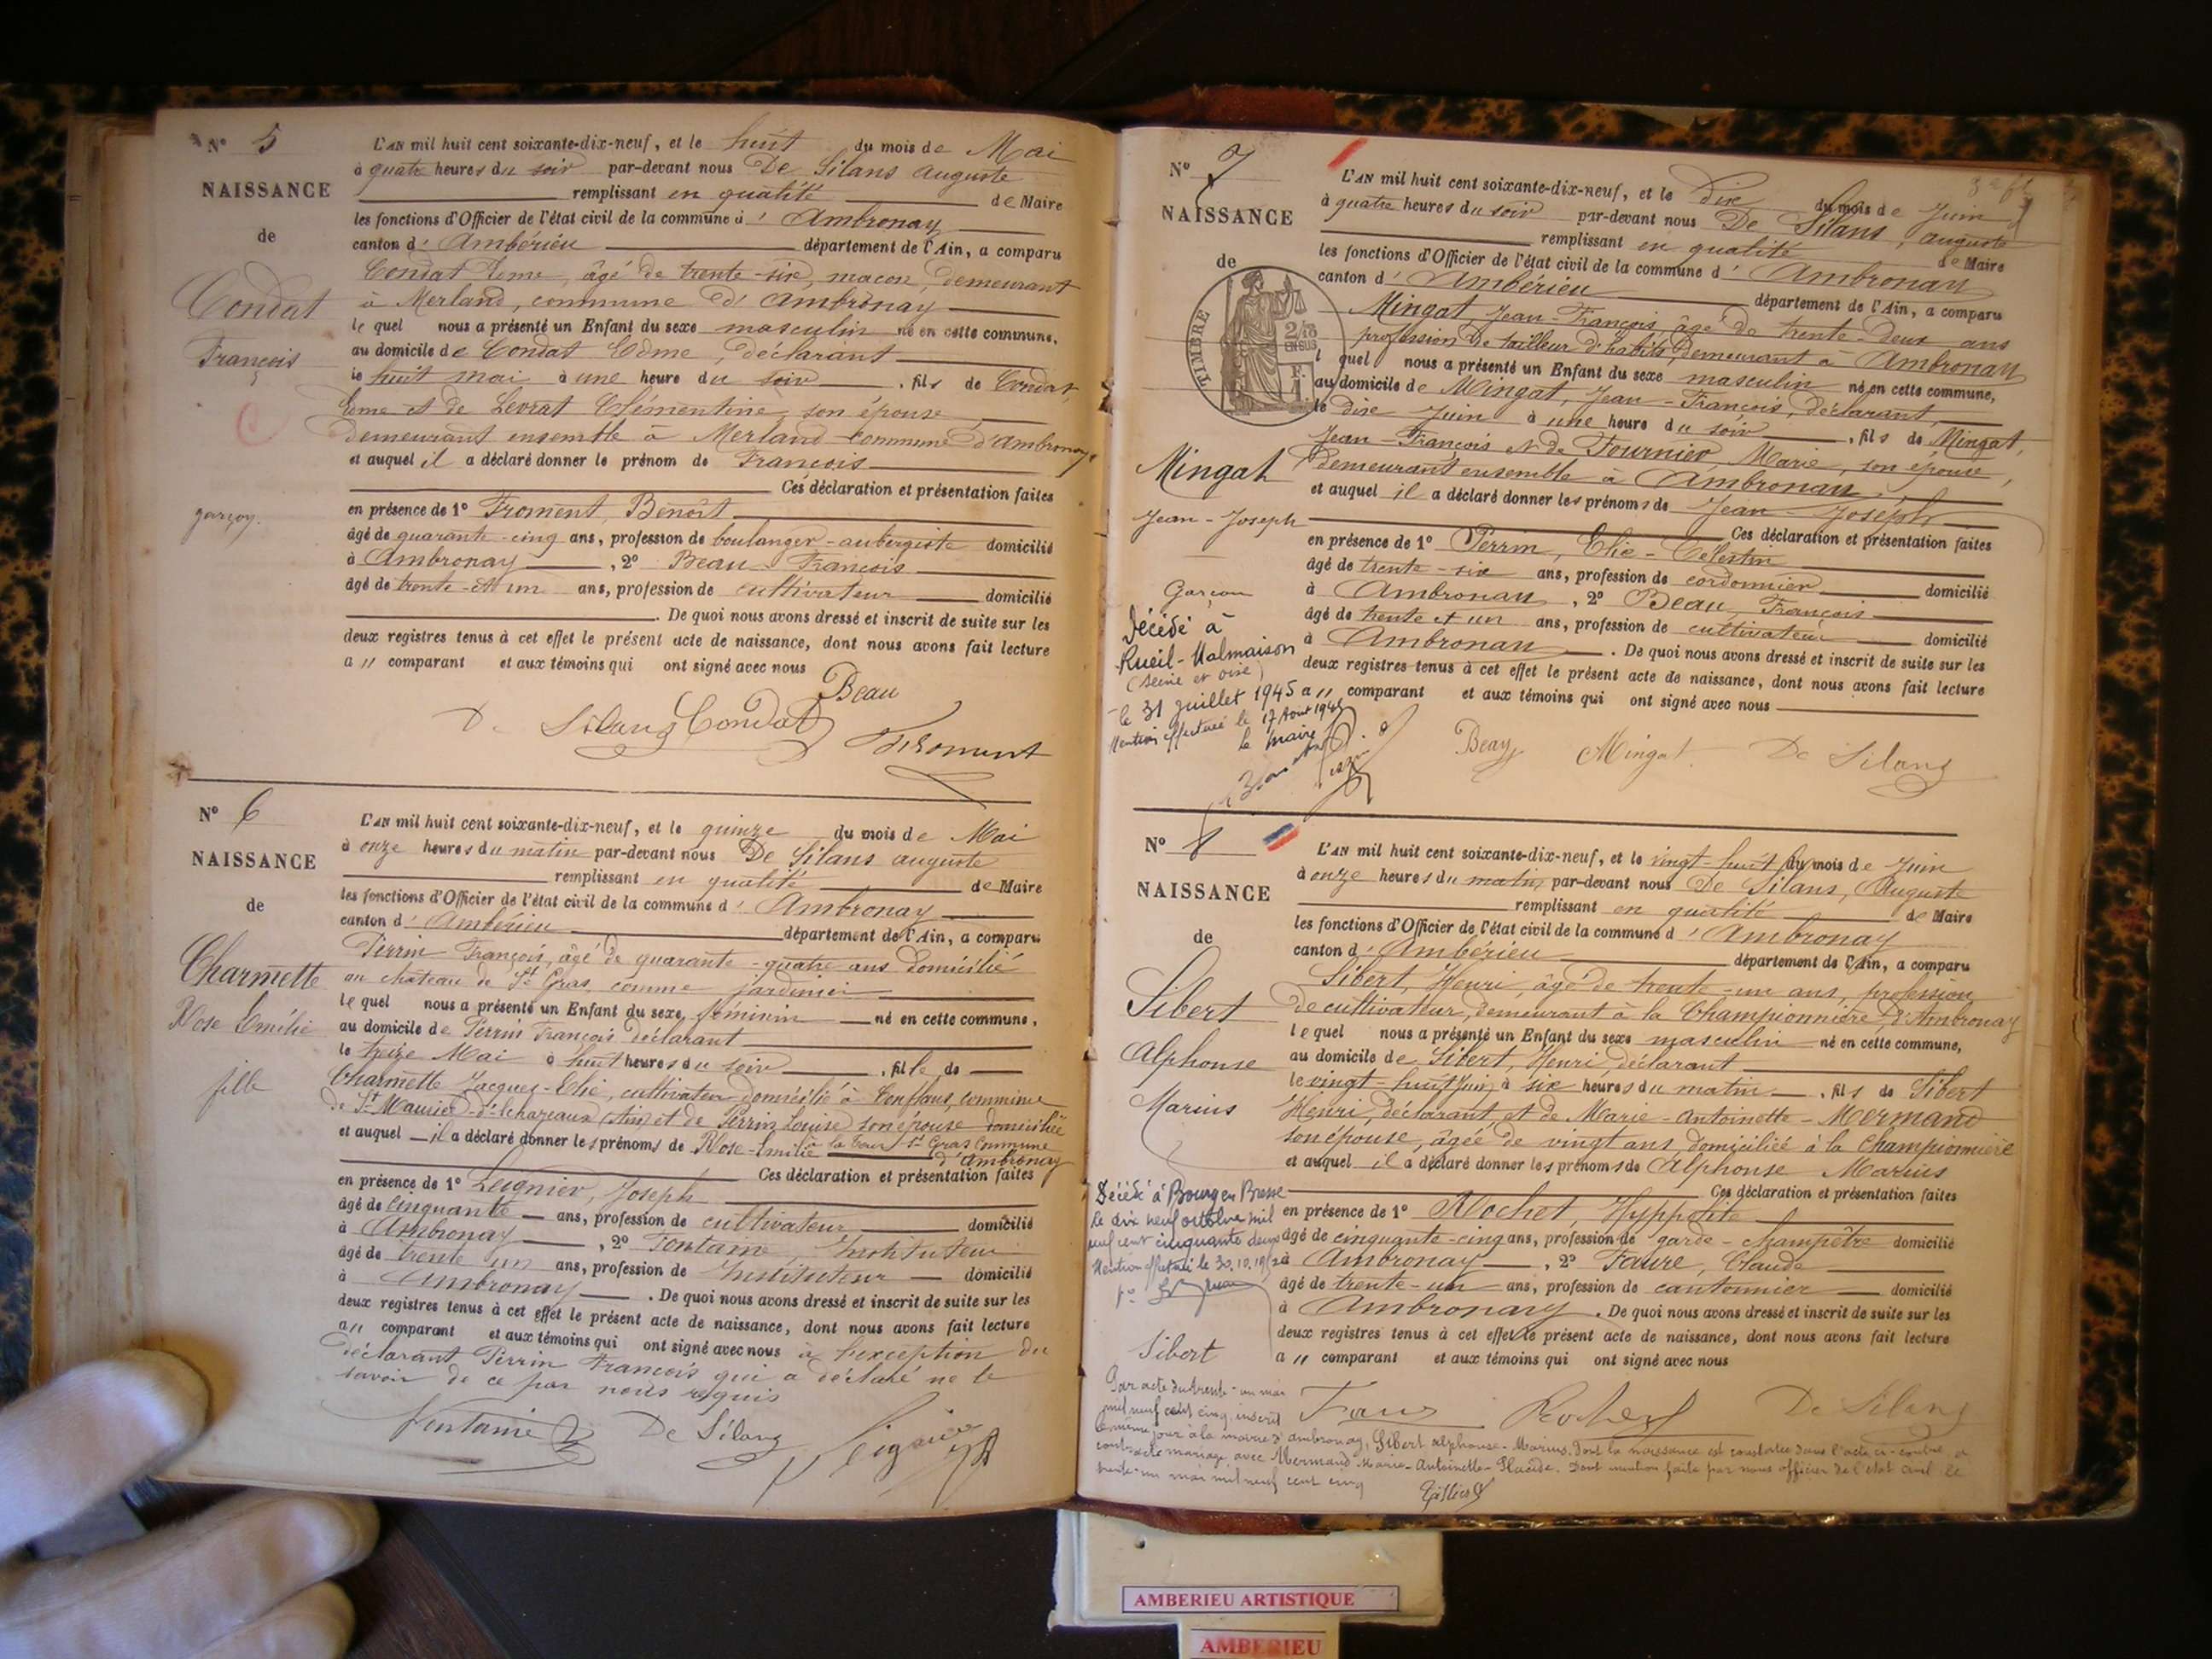 N° 5
NAISSANCE
de
Condat
François
garçon.
L'AN mil huit cent soixante-dix-neuf, et le huit du mois de Mai
à quatre heures du soir par-devant nous De Silans Auguste
remplissant en qualité de Maire
les fonctions d'Officier de l'état civil de la commune d' Ambronay
canton d' Ambérieu département de l'Ain, a comparu
Condat Edme, âgé de trente-six, maçon, demeurant
à Merland, commune d'Ambronay
le quel nous a présenté un Enfant du sexe masculin né en cette commune,
au domicile de Condat Edme, déclarant
le huit mai à une heure du soir, fils de Condat
Edme et de Levrat Clémentine, son épouse
demeurant ensemble à Merland commune d'Ambronay
et auquel il a déclaré donner le prénom de François
Ces déclaration et présentation faites
en présence de 1° Froment, Benoît
âgé de quarante-cinq ans, profession de boulanger-aubergiste domicilié
à Ambronay, 2° Beau François
âgé de trente-et un ans, profession de cultivateur domicilié
. De quoi nous avons dressé et inscrit de suite sur les
deux registres tenus à cet effet le présent acte de naissance, dont nous avons fait lecture
a u comparant et aux témoins qui ont signé avec nous
Beau
De Silans Condat Froment
N° 6
NAISSANCE
de
Charmette
Rose Emélie
fille
L'AN mil huit cent soixante-dix-neuf, et le quinze du mois de Mai
à onze heures du matin par-devant nous De Silans auguste
remplissant en qualité de Maire
les fonctions d'Officier de l'état civil de la commune d' Ambronay
canton d' Ambérieu département de l'Ain, a comparu
Perrin François, âgé de quarante-quatre ans domicilié
au château de St Gras comme jardinier
le quel nous a présenté un Enfant du sexe féminin né en cette commune,
au domicile de Perrin François déclarant
le treize Mai à huit heures du soir, fille de
Charmette Jacques-Elie, cultivateur domicilié à Conflans, commune
de St Maurice-d'Echazeaux (Ain) et de Perrin Louise son épouse domiciliée
à la Tour St Gras Commune d'Ambronay
et auquel il a déclaré donner les prénoms de Rose-Emilie
Ces déclaration et présentation faites
en présence de 1° Leignier, Joseph
âgé de cinquante ans, profession de cultivateur domicilié
à Ambronay, 2° Fontaine, Instituteur
âgé de trente un ans, profession de Instituteur domicilié
à Ambronay. De quoi nous avons dressé et inscrit de suite sur les
deux registres tenus à cet effet le présent acte de naissance, dont nous avons fait lecture
a u comparant et aux témoins qui ont signé avec nous à l'exception du
déclarant Perrin François qui a déclaré ne le
savoir de ce par nous requis
Fontaine De Silans Leignier
N° 7
NAISSANCE
de
TIMBRE
2/10
EN SUS
Mingat
Jean-Joseph
Garçon
Décédé à
Rueil-Malmaison
(Seine et oise)
le 31 juillet 1945
Mention effectuée le 17 Août 1945
le maire
L'AN mil huit cent soixante-dix-neuf, et le dix du mois de Juin
à quatre heures du soir par-devant nous De Silans, auguste
remplissant en qualité de Maire
les fonctions d'Officier de l'état civil de la commune d' Ambronay
canton d' Ambérieu département de l'Ain, a comparu
Mingat, Jean-François, âgé de trente-deux ans
profession de tailleur d'habits, demeurant à Ambronay
l quel nous a présenté un Enfant du sexe masculin né en cette commune,
au domicile de Mingat, Jean-François, déclarant,
le dix Juin à une heure du soir, fils de Mingat,
Jean-François et de Fournier Marie, son épouse,
demeurant ensemble à Ambronay
et auquel il a déclaré donner les prénoms de Jean-Joseph
Ces déclaration et présentation faites
en présence de 1° Perrin, Elie-Célestin
âgé de trente-six ans, profession de cordonnier domicilié
à Ambronay, 2° Beau, François
âgé de trente et un ans, profession de cultivateur domicilié
à Ambronay. De quoi nous avons dressé et inscrit de suite sur les
deux registres tenus à cet effet le présent acte de naissance, dont nous avons fait lecture
a u comparant et aux témoins qui ont signé avec nous
Beau Mingat De Silans
N° 8
NAISSANCE
de
Sibert
Alphonse
Marius
Décédé à Bourg en Bresse
le dix neuf octobre mil
neuf cent cinquante deux
Mention effectuée le 30.10.1952
L'AN mil huit cent soixante-dix-neuf, et le vingt-huit du mois de Juin
à onze heures du matin par-devant nous De Silans, Auguste
remplissant en qualité de Maire
les fonctions d'Officier de l'état civil de la commune d' Ambronay
canton d' Ambérieu département de l'Ain, a comparu
Sibert, Henri, âgé de trente-un ans, profession
de cultivateur, demeurant à la Championnière, d'Ambronay
le quel nous a présenté un Enfant du sexe masculin né en cette commune,
au domicile de Sibert, Henri, déclarant
le vingt-huit Juin à six heures du matin, fils de Sibert
Henri, déclarant, et de Marie-Antoinette-Mermand
son épouse, âgée de vingt ans domiciliée à la Championnière
et auquel il a déclaré donner les prénoms de Alphonse Marius
Ces déclaration et présentation faites
en présence de 1° Rochet, Hyppolite
âgé de cinquante-cinq ans, profession de garde-champêtre domicilié
à Ambronay, 2° Faure, Claude
âgé de trente-un ans, profession de cantonnier domicilié
à Ambronay. De quoi nous avons dressé et inscrit de suite sur les
deux registres tenus à cet effet le présent acte de naissance, dont nous avons fait lecture
a u comparant et aux témoins qui ont signé avec nous
Faure Rochet De Silans
Sibert
Par acte du trente-un mai
mil neuf cent cinq, inscrit
le même jour à la mairie d'ambronay, Sibert alphonse-Marius, dont la naissance est constatée dans l'acte ci-contre, a
contracté mariage avec Mermand Marie-Antoinette-Placide. Dont mention faite par nous officier de l'état civil le
trente-un mai mil neuf cent cinq
AMBERIEU ARTISTIQUE
AMBERIEU